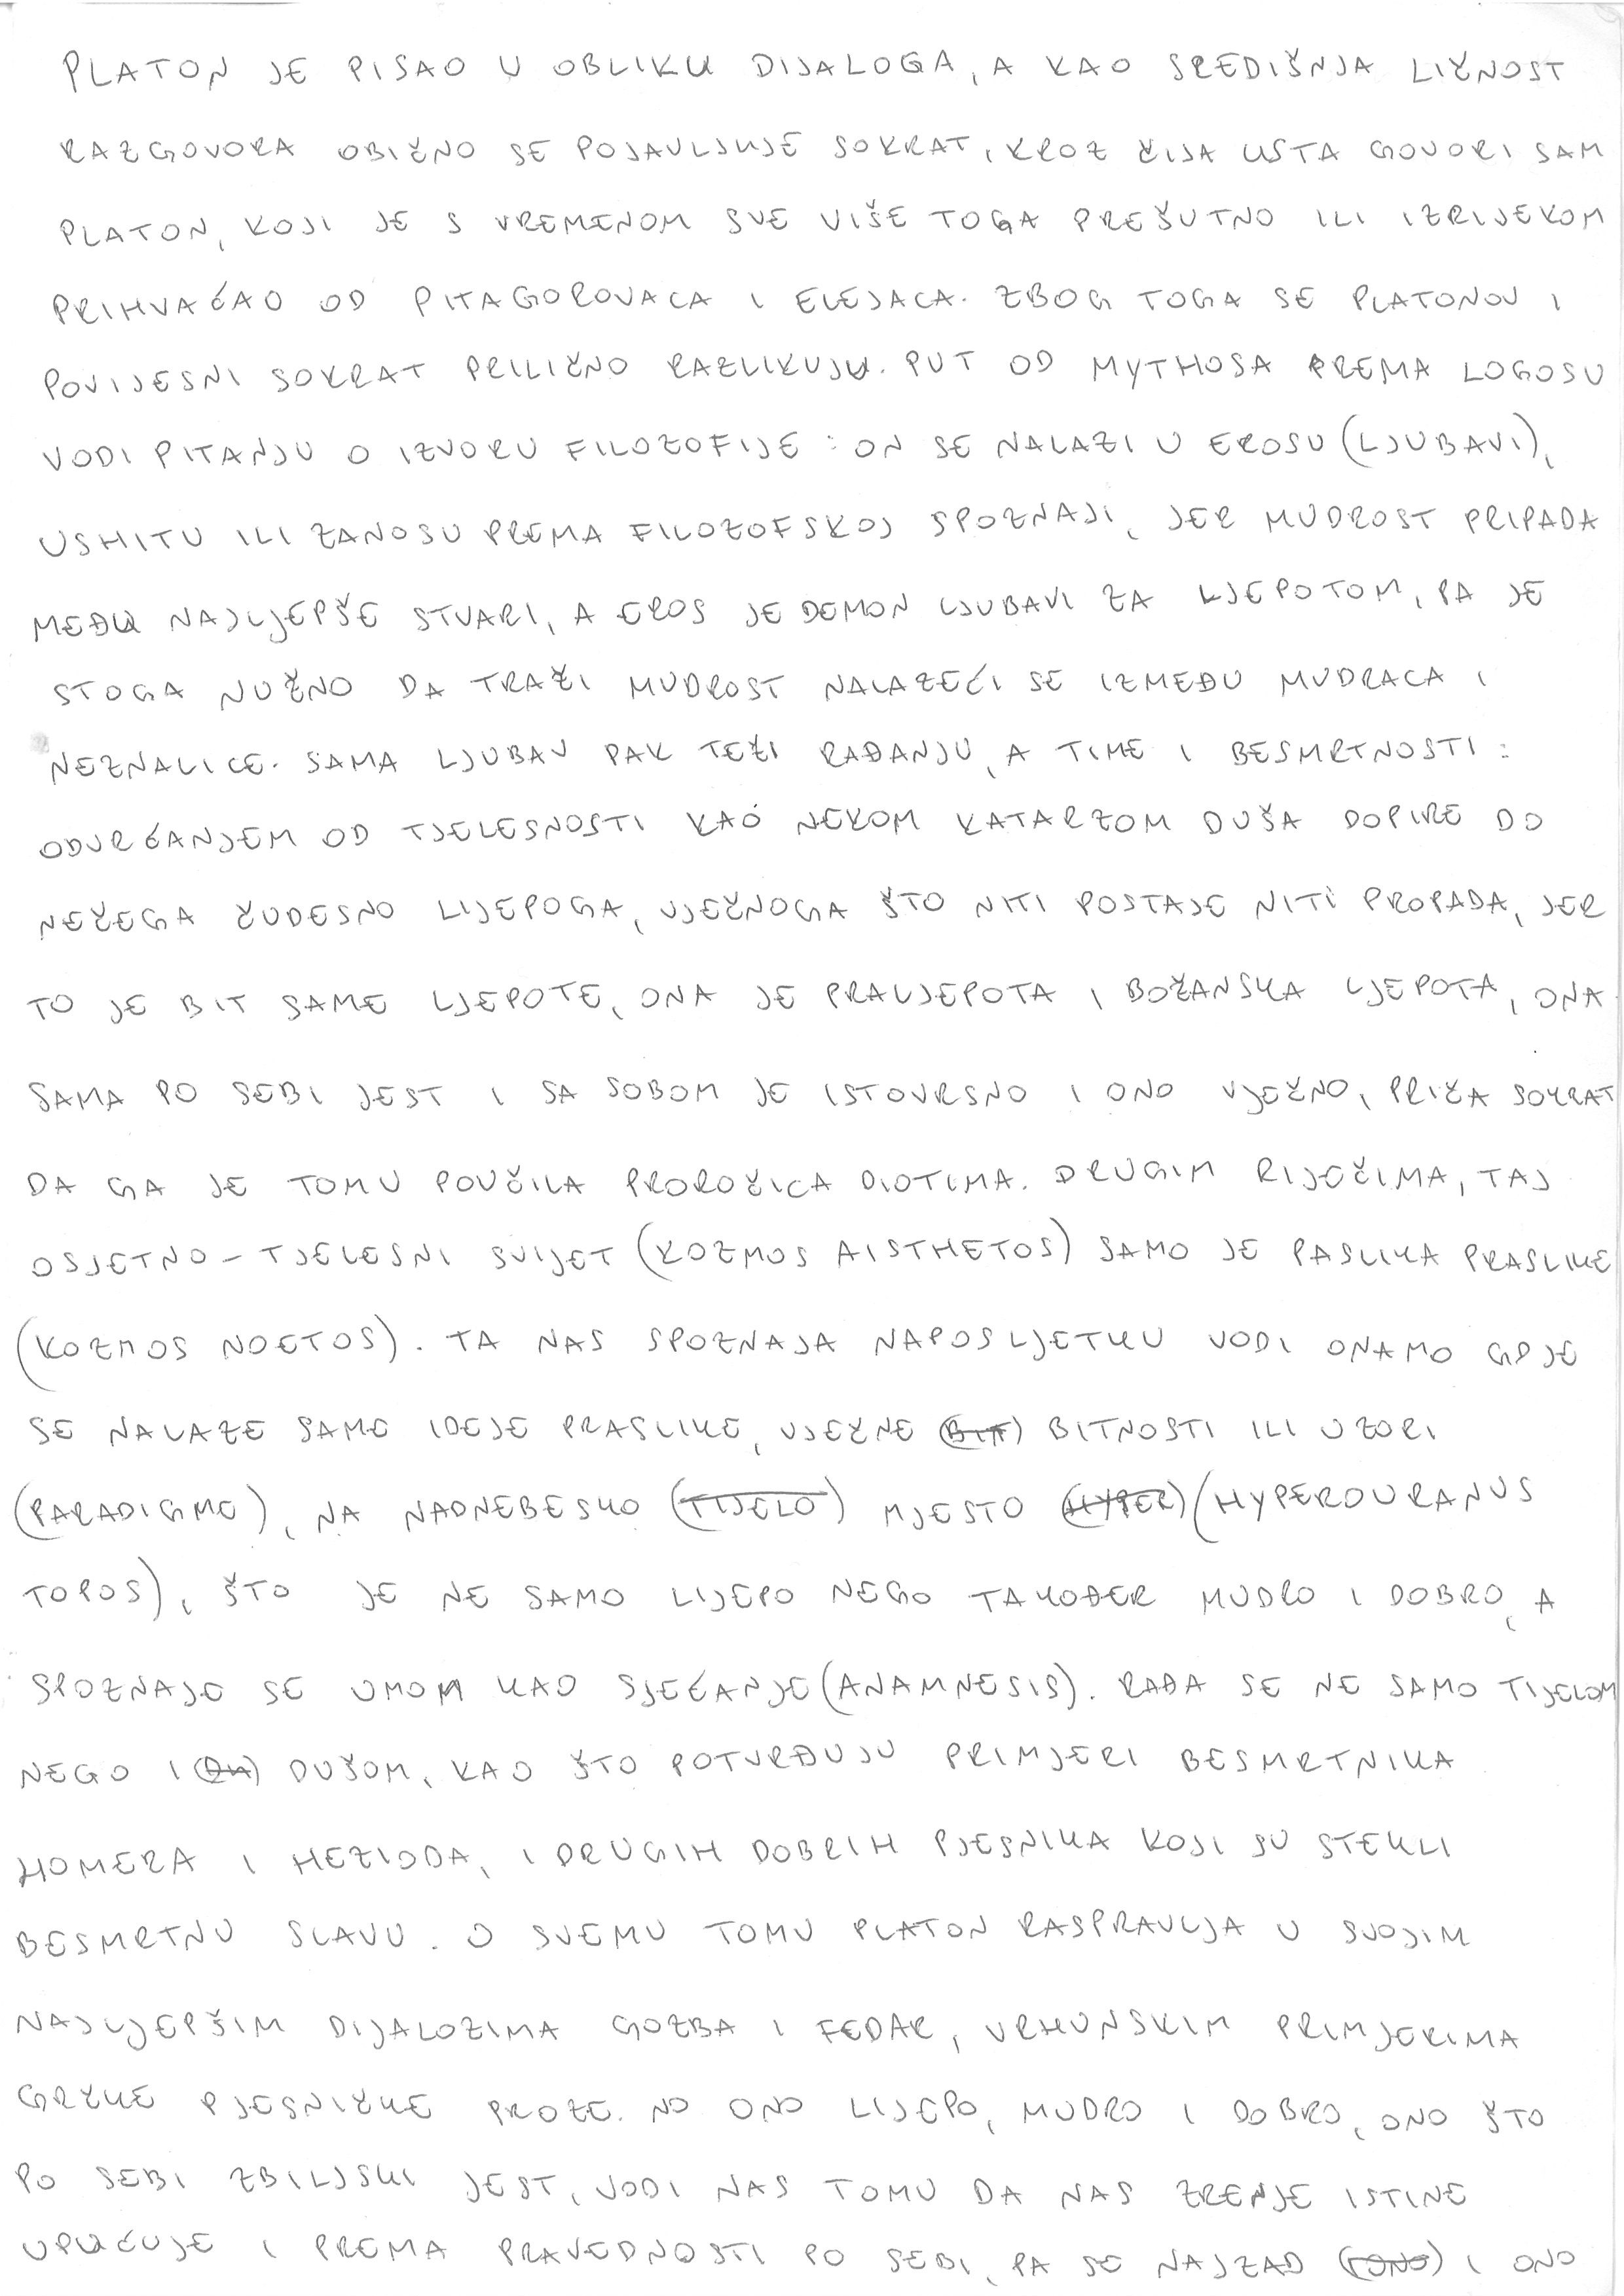 PLATON JE PISAO U OBLIKU DIJALOGA, A KAO SREDIŠNJA LIČNOST
RAZGOVORA OBIČNO SE POJAVLJUJE SOKRAT, KROZ ČIJA USTA GOVORI SAM
PLATON, KOJI JE S VREMENOM SVE VIŠE TOGA PREŠUTNO ILI IZRIJEKOM
PRIHVAĆAO OD PITAGOROVACA I ELEJACA. ZBOG TOGA SE PLATONOV I
POVIJESNI SOKRAT PRILIČNO RAZLIKUJU. PUT OD MYTHOSA PREMA LOGOSU
VODI PITANJU O IZVORU FILOZOFIJE: ON SE NALAZI U EROSU (LJUBAVI),
USHITU ILI ZANOSU PREMA FILOZOFSKOJ SPOZNAJI, JER MUDROST PRIPADA
MEĐU NAJLJEPŠE STVARI, A EROS JE DEMON LJUBAVI ZA LJEPOTOM, PA JE
STOGA NUŽNO DA TRAŽI MUDROST NALAZEĆI SE IZMEĐU MUDRACA I
NEZNALICE. SAMA LJUBAV PAK TEŽI RAĐANJU, A TIME I BESMRTNOSTI:
ODVRĆANJEM OD TJELESNOSTI KAO NEKOM KATARZOM DUŠA DOPIRE DO
NEČEGA ČUDESNO LIJEPOGA, VJEČNOGA ŠTO NITI POSTAJE NITI PROPADA, JER
TO JE BIT SAME LJEPOTE, ONA JE PRALJEPOTA I BOŽANSKA LJEPOTA, ONA
SAMA PO SEBI JEST I SA SOBOM JE ISTOVRSNO I ONO VJEČNO, PRIČA SOKRAT
DA GA JE TOMU POUČILA PROROČICA DIOTIMA. DRUGIM RIJEČIMA, TAJ
OSJETNO-TJELESNI SVIJET (KOZMOS AISTHETOS) SAMO JE PASLIKA PRASLIKE
(KOZMOS NOETOS). TA NAS SPOZNAJA NAPOSLJETKU VODI ONAMO GDJE
SE NALAZE SAME IDEJE PRASLIKE, VJEČNE (BIT) BITNOSTI ILI UZORI
(PARADIGME), NA NADNEBESKO (TIJELO) MJESTO (HYPER) (HYPEROURANUS
TOPOS), ŠTO JE NE SAMO LIJEPO NEGO TAKOĐER MUDRO I DOBRO, A
SPOZNAJE SE UMOM KAO SJEĆANJE (ANAMNESIS). RAĐA SE NE SAMO TIJELOM
NEGO I (DU) DUŠOM, KAO ŠTO POTVRĐUJU PRIMJERI BESMRTNIKA
HOMERA I HEZIODA, I DRUGIH DOBRIH PJESNIKA KOJI SU STEKLI
BESMRTNU SLAVU. O SVEMU TOMU PLATON RASPRAVLJA U SVOJIM
NAJLJEPŠIM DIJALOZIMA GOZBA I FEDAR, VRHUNSKIM PRIMJERIMA
GRČKE PJESNIČKE PROZE. NO ONO LIJEPO, MUDRO I DOBRO, ONO ŠTO
PO SEBI ZBILJSKI JEST, VODI NAS TOMU DA NAS ZRENJE ISTINE
UPUĆUJE I PREMA PRAVEDNOSTI PO SEBI, PA SE NAJZAD (I ONO) I ONO